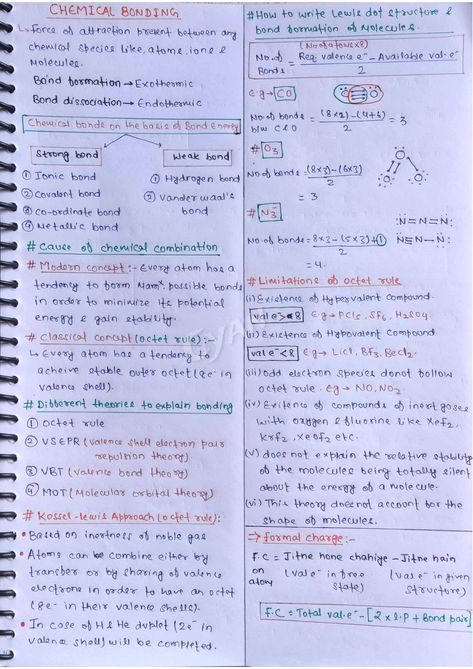 CHEMICAL BONDING
Force of attraction present between any
chemical species like, atoms, ions &
Molecules.
Bond formation → Exothermic
Bond dissociation → Endothermic
Chemical bonds on the basis of Bond Energy
Strong bond
① Ionic bond
② Covalent bond
③ Co-ordinate bond
④ Metallic bond
Weak bond
① Hydrogen bond
② Vander waal's
bond
# Cause of chemical combination
# Modern concept :- Every atom has a
tendency to form Nam^x possible bonds
in order to minimize its potential
energy & gain stability.
# Classical concept (octet rule) :-
↳ Every atom has a tendency to
acheive stable outer octet (8e⁻ in
valence shell).
# Different theories to explain bonding
① Octet rule
② VSEPR (valence shell electron pair
repultion theory)
③ VBT (valence bond theory)
④ MOT (Molecular orbital theory)
# Kossel-lewis Approach (octet rule):
• Based on inertness of noble gas
• Atoms can be combine either by
transfer or by sharing of valence
electrons in order to have an octet
(8e⁻ in their valence shells).
• In case of H & He duplet (2e⁻ in
valence shell) will be completed.
# How to write Lewis dot structure &
bond formation of Molecules.
(No of atoms x 8)
No. of Bonds = Req. valence e⁻ - Available val. e⁻ / 2
E.g → CO
No of bonds b/w C & O = (8×2) - (4+6) / 2 = 3
# O₃
No of bonds = (8×3) - (6×3) / 2
= 3
# N₃⁻
No. of bonds = 8×3 - (5×3) + 1 / 2
= 4.
N = N = N
N ≡ N - N
# Limitations of octet rule
(i) Existence of Hypervalent compound.
val e⁻ > 8 E.g → PCl₅, SF₆, H₂SO₄.
(ii) Existence of Hypovalent Compound.
val e⁻ < 8 E.g → LiCl, BF₃, BeCl₂.
(iii) odd electron species donot follow
octet rule. Eg → NO, NO₂
(iv) Exitence of compounds of inert gases
with oxygen & fluorine like XeF₂,
KrF₂, XeOF₂ etc.
(v) does not explain the relative stability
of the molecules being totally silent
about the energy of a molecule.
(vi) This theory doesnot account for the
shape of molecules.
⇒ Formal charge :-
F.C on atom = Jitne hone chahiye - Jitne hain
(val e⁻ in free state) (val e⁻ in given structure)
F.C = Total val. e⁻ - [2 x l.p + Bond pair]